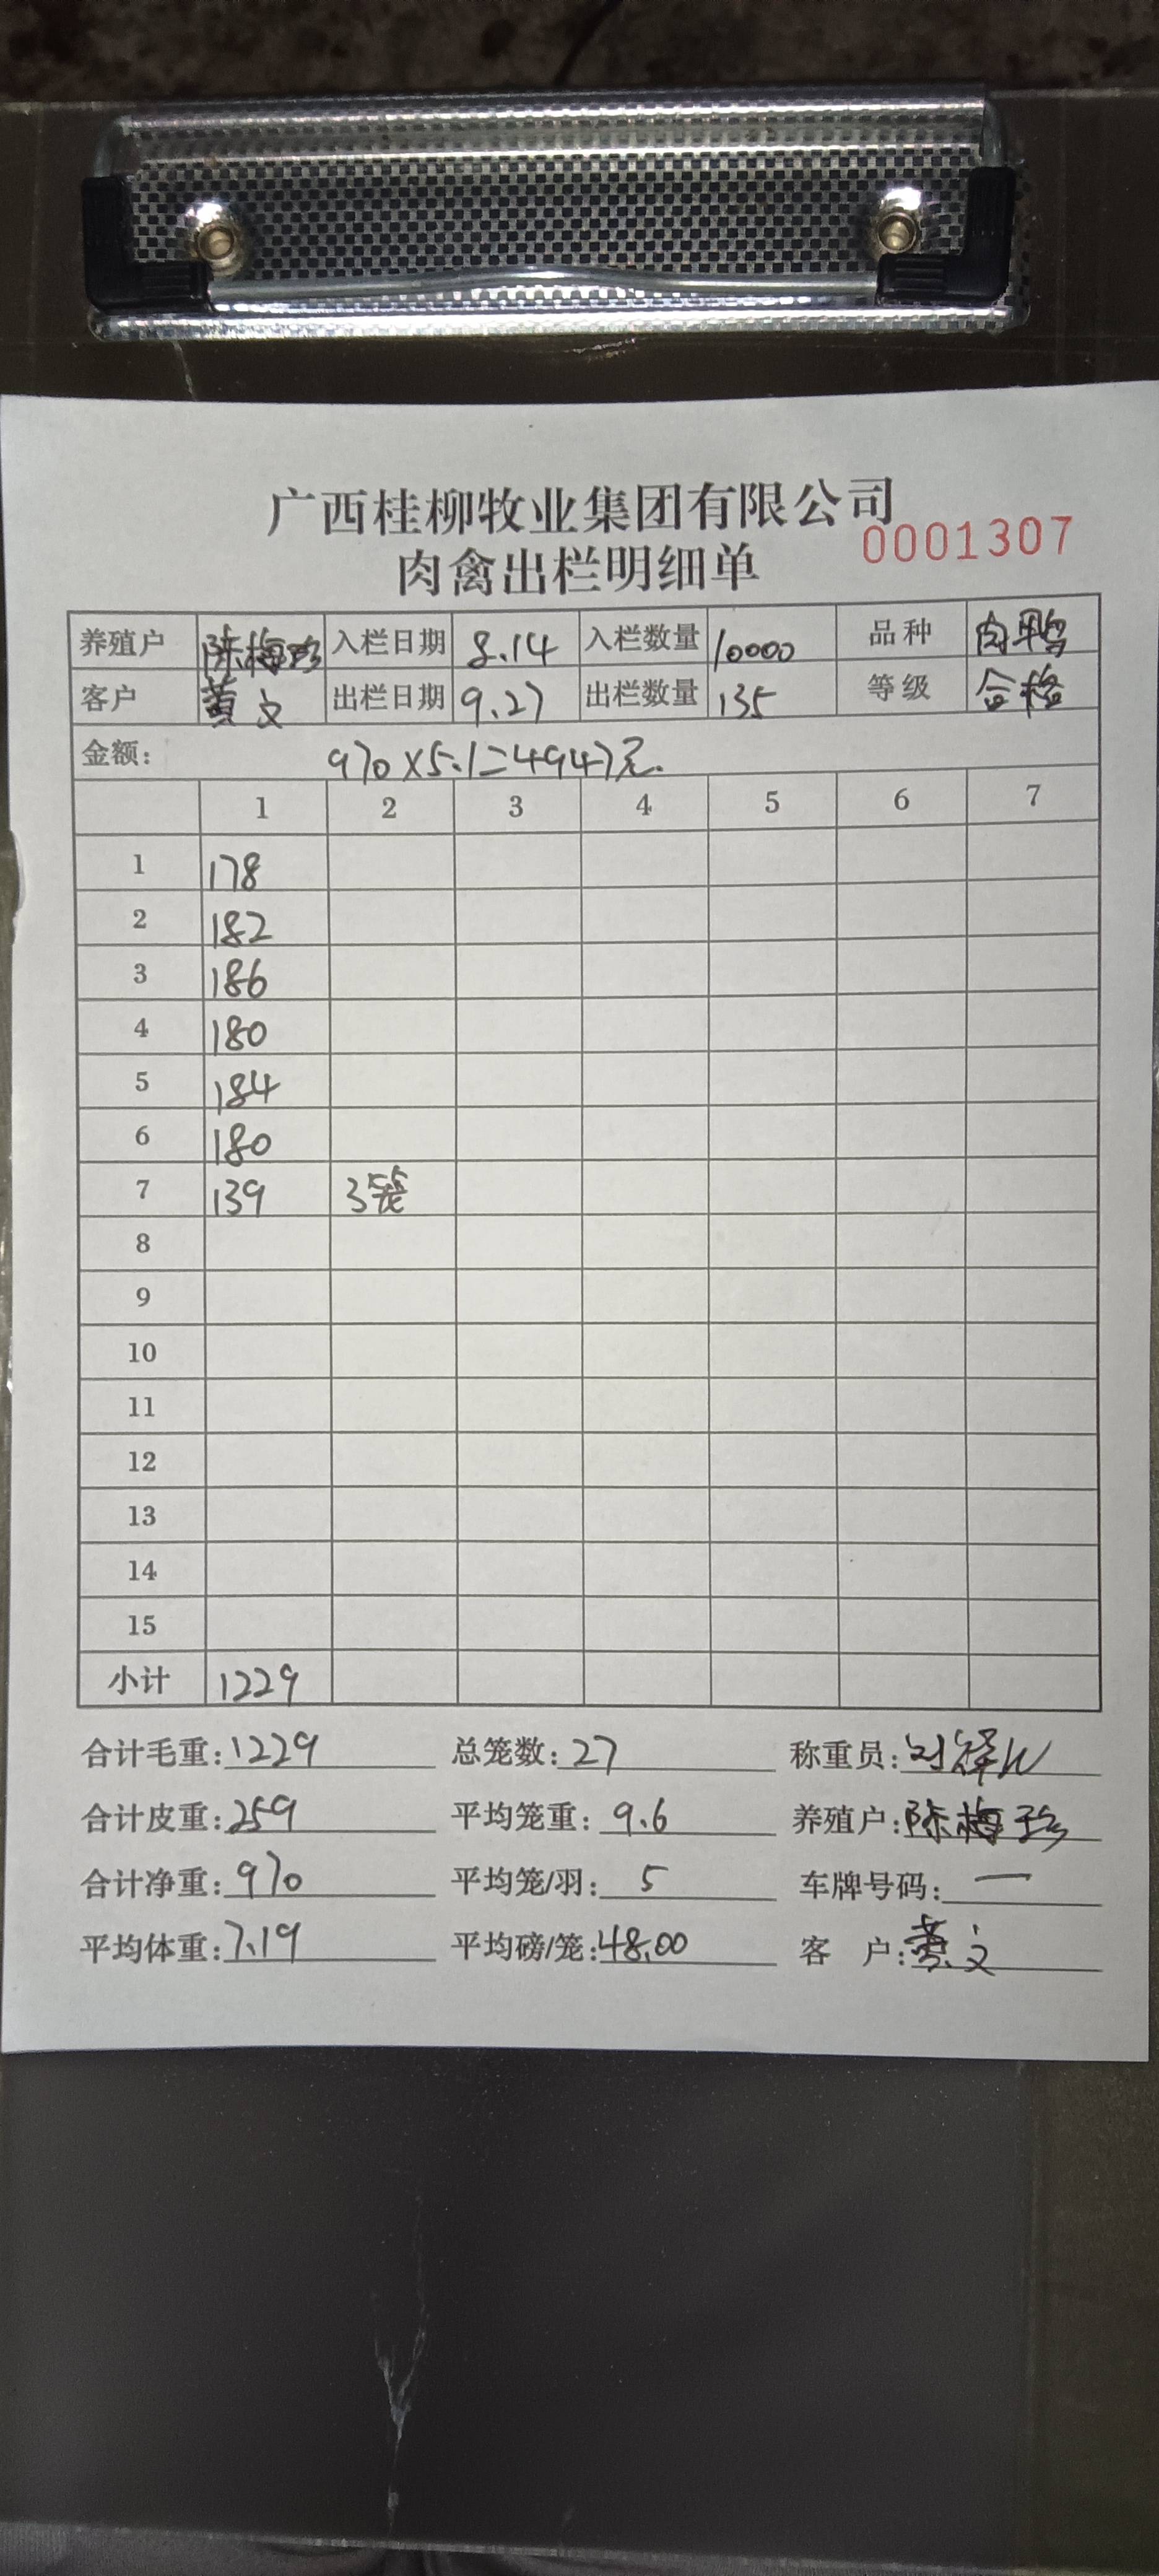 广西桂柳牧业集团有限公司
0001307
肉禽出栏明细单
养殖户 陈梅珍 入栏日期 8.14 入栏数量 10000 品种 肉鸭
客户 黄文 出栏日期 9.27 出栏数量 135 等级 合格
金额: 970×5.1=4947元.
1 2 3 4 5 6 7
1 178
2 182
3 186
4 180
5 184
6 180
7 139 3笼
8
9
10
11
12
13
14
15
小计 1229
合计毛重:1229 总笼数:27 称重员:刘
合计皮重:259 平均笼重:9.6 养殖户:陈梅珍
合计净重:970 平均笼/羽:5 车牌号码:一
平均体重:7.19 平均磅/笼:48.00 客 户:黄文